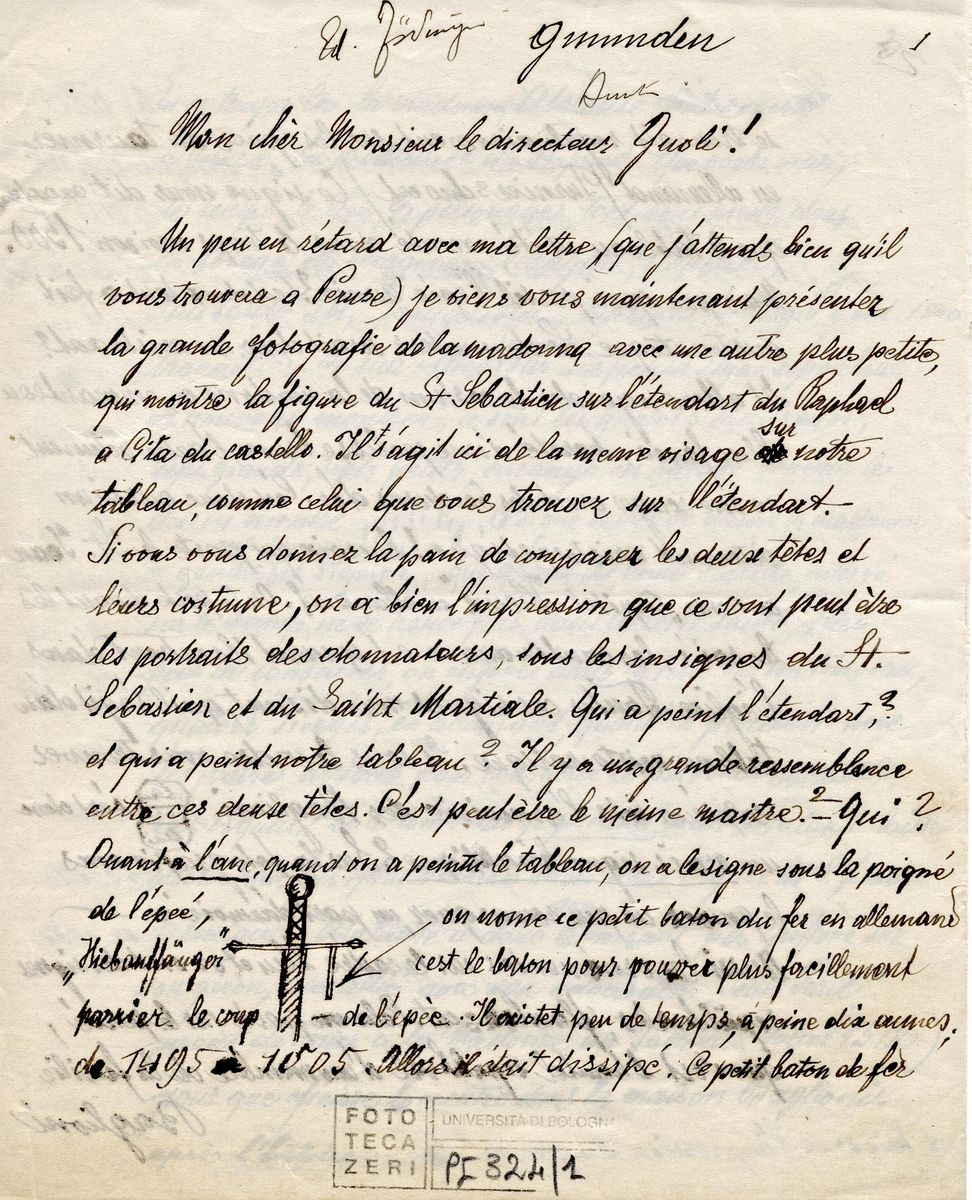 Ed. Gmunden 1
Mon chèr Monsieur le directeur Guoli!
Un peu en rétard avec ma lettre, (que j'attends bien qu'il
vous trouvera a Peruse) je viens vous maintenant présenter
la grande fotografie de la madonna avec une autre plus petite,
qui montre la figure du St Sebastien sur l'étendart du Raphael
a Cita du castello. Il s'agit ici de la meme visage sur notre
tableau, comme celui que vous trouvez sur l'étendart.–
Si vous vous donnez la pain de comparer les deux têtes et
léurs costume, on a bien l'impression que ce sont peut être
les portraits des donnateurs, sous les insignes du St.
Sebastien et du Saint Martiale. Qui a peint l'étendart,?
et qui a peint notre tableau? Il y a une grande ressemblence
entre ces deuse têtes. C'est peut être le même maitre.?– Qui?
Quant à l'ane, quand on a peintu le tableau, on a le signe sous la poigné
de l'épeé, on nome ce petit baton du fer en allemand
„Hiebauffänger" c'est le baton pour pouvoir plus facillement
parrier le coup – de l'épèe. Il existet peu de temps, à peine dix annes,
de 1495 à 1505. Allors il était dissipé. Ce petit baton de fèr
FOTO
TECA
ZERI
UNIVERSITÀ DI BOLOGNA
PI 324/1